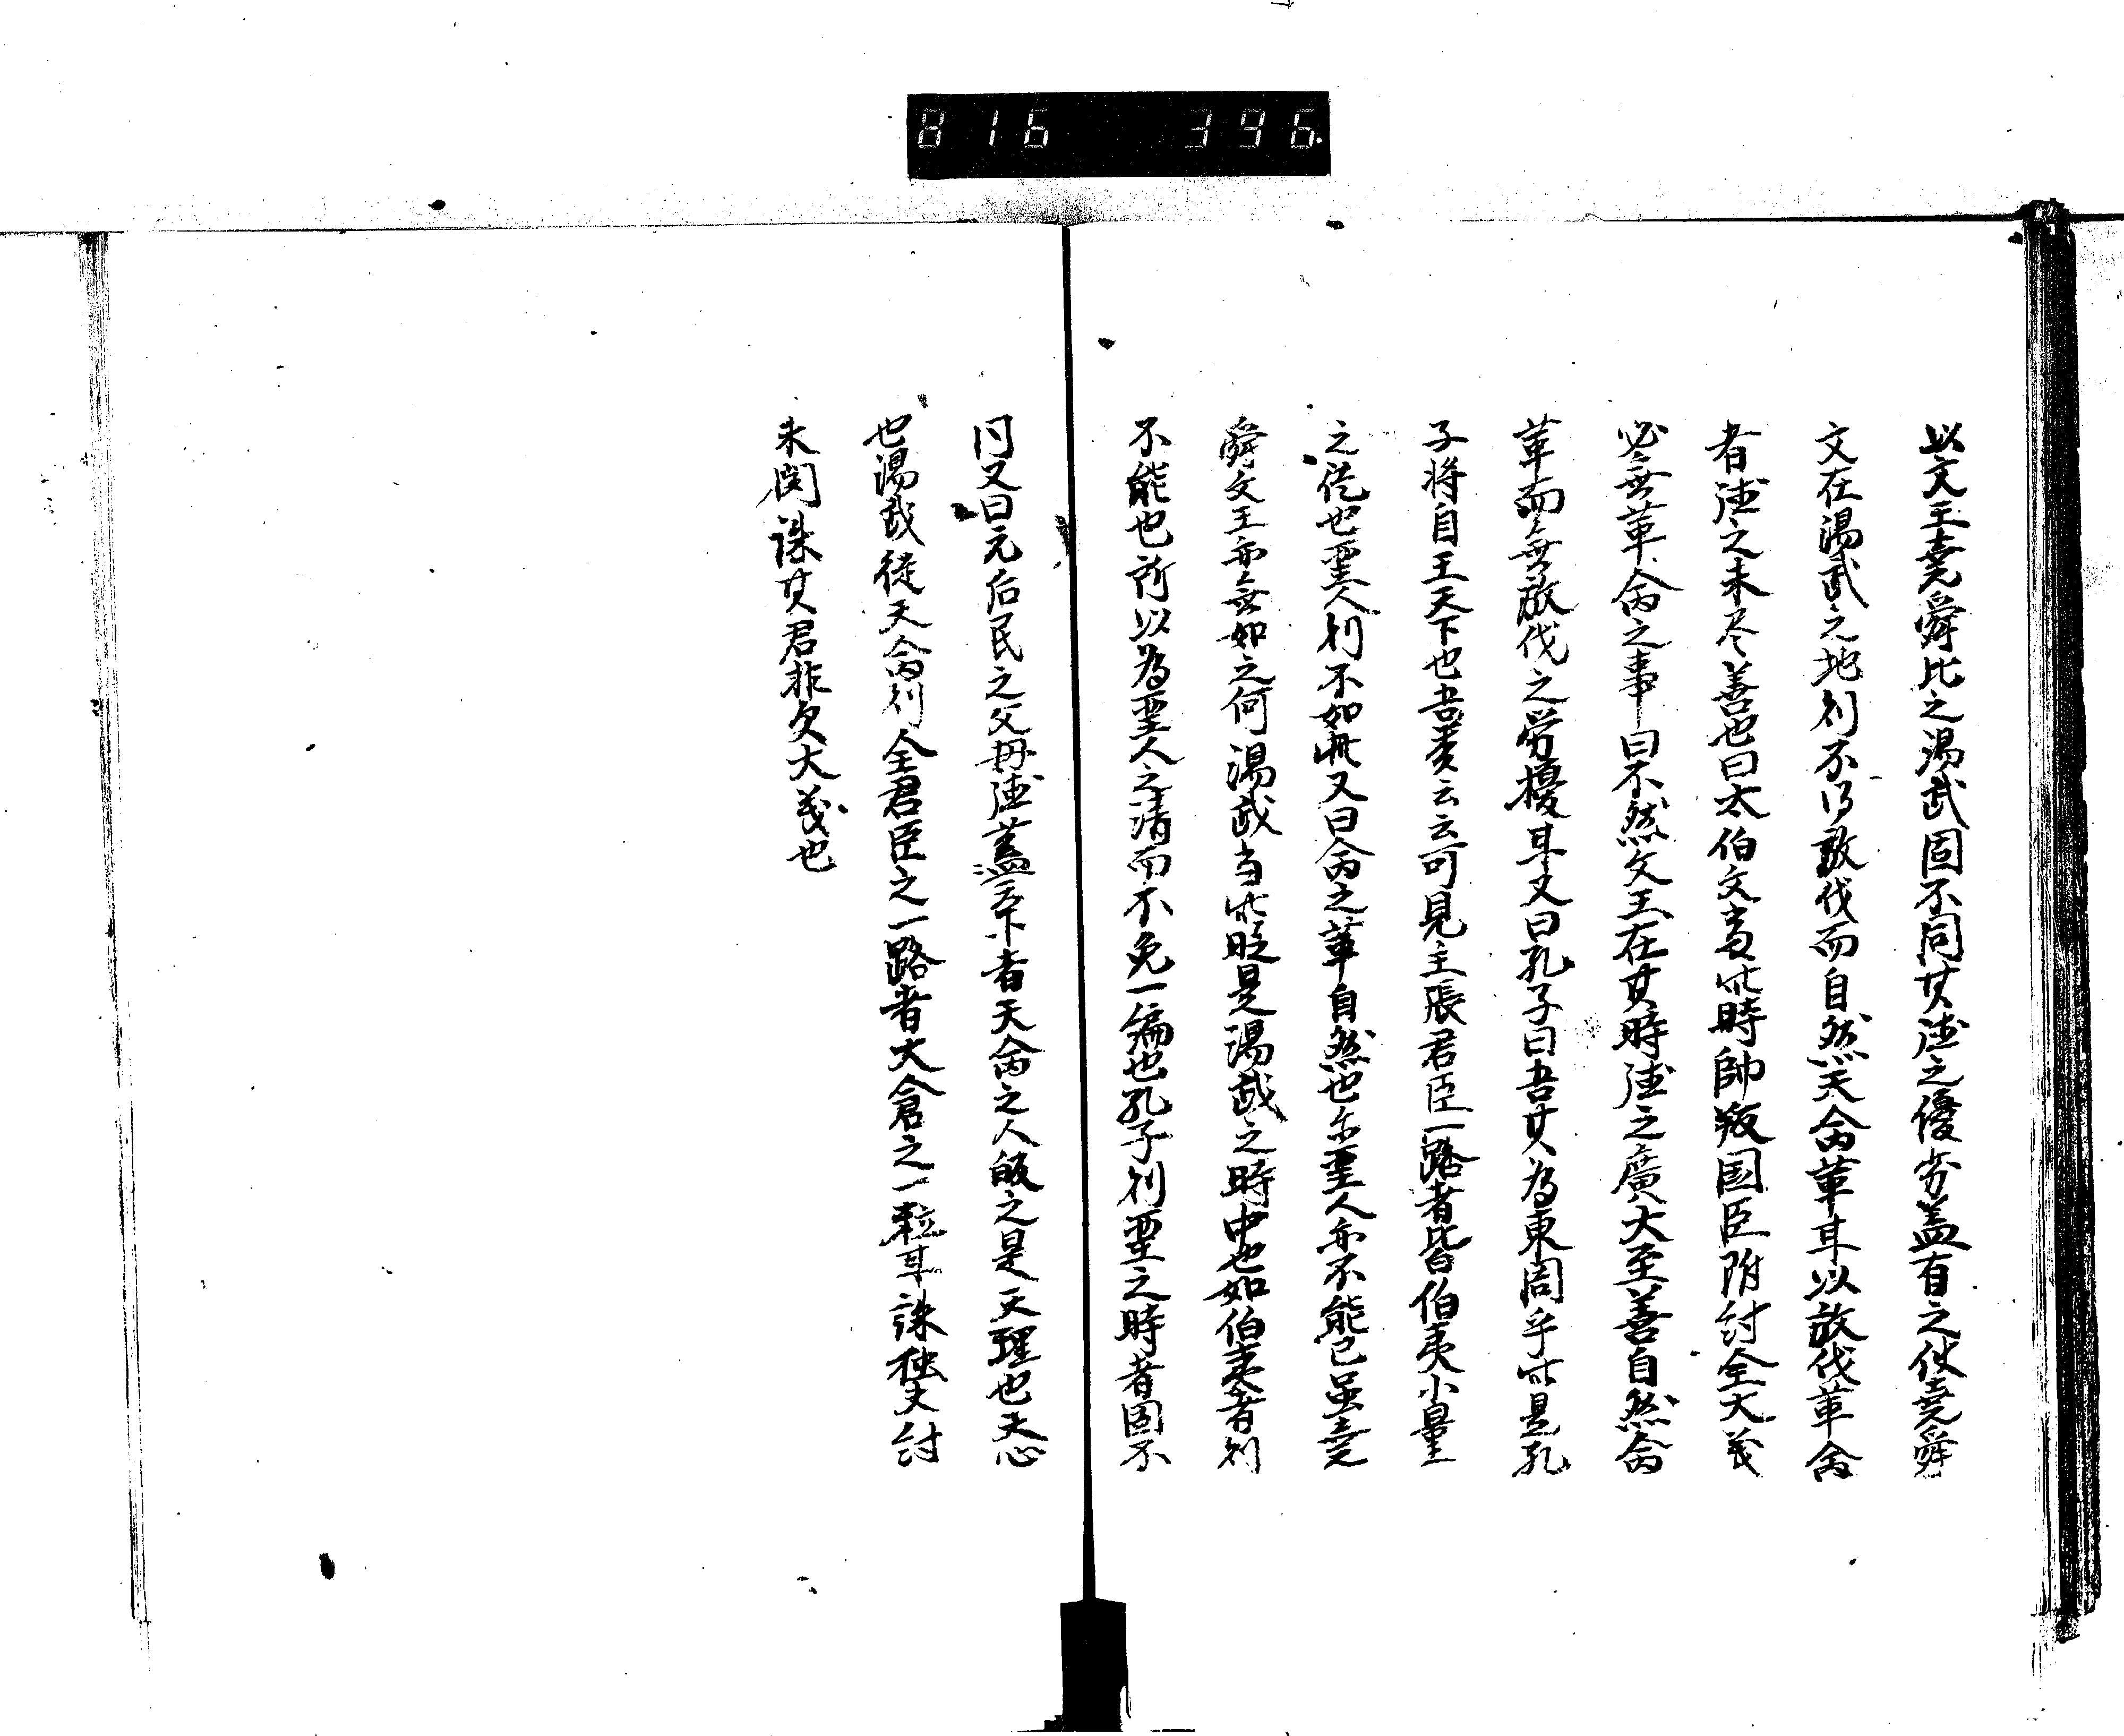 816 396.
以文王堯舜比之湯武固不同其徳之優劣盖有之使堯舜
文在湯武之地則不得放伐而自然天命革耳以放伐革命
者徳之未尽善也曰太伯文王此時帥叛国臣附紂全大義
必無革命之事曰不然文王在其時徳之廣大至善自然命
革而無放伐之労擾耳又曰孔子曰吾其為東周乎此是孔
子将自王天下也吾云云可見主張君臣一路者皆伯夷小量
之徒也聖人則不如此又曰命之革自然也尓聖人亦不能已虽堯
舜文王亦無如之何湯武当此時是湯武之時中也如伯夷者則
不能也所以為聖人之清而不免一偏也孔子則聖之時者固不
同又曰元后民之父母徳蓋天下者天命之人皈之是天理也天心
也湯武従天命則全君臣之一路者大倉之一粒耳誅独夫紂
未聞誅其君非欠大義也